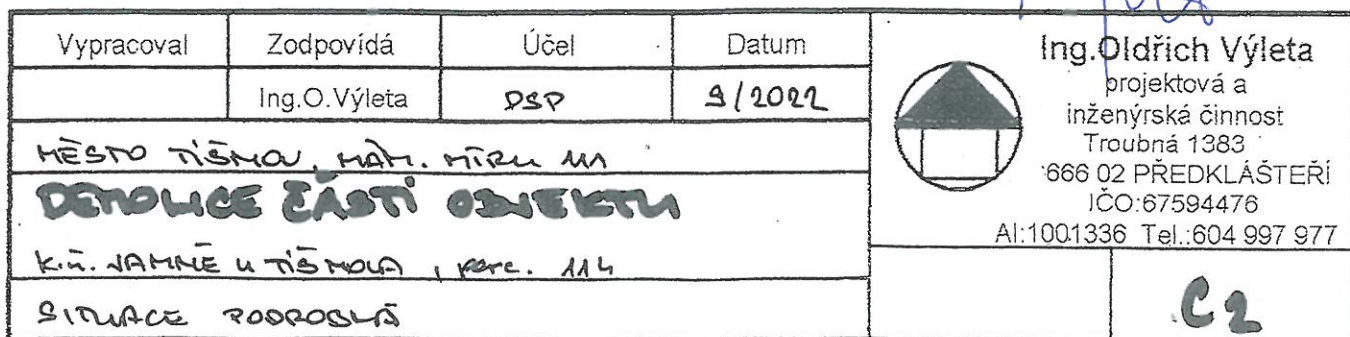 Vypracoval Zodpovídá Účel Datum
Ing.O.Výleta DSP 9/2022
MĚSTO TIŠNOV, NÁM. MÍRU 111
DEMOLICE ČÁSTI OBJEKTU
K.ú. JAMNÉ U TIŠNOVA, parc. 114
SITUACE PODROBNÁ
Ing.Oldřich Výleta
projektová a
inženýrská činnost
Troubná 1383
666 02 PŘEDKLÁŠTEŘÍ
IČO:67594476
AI:1001336 Tel.:604 997 977
C2